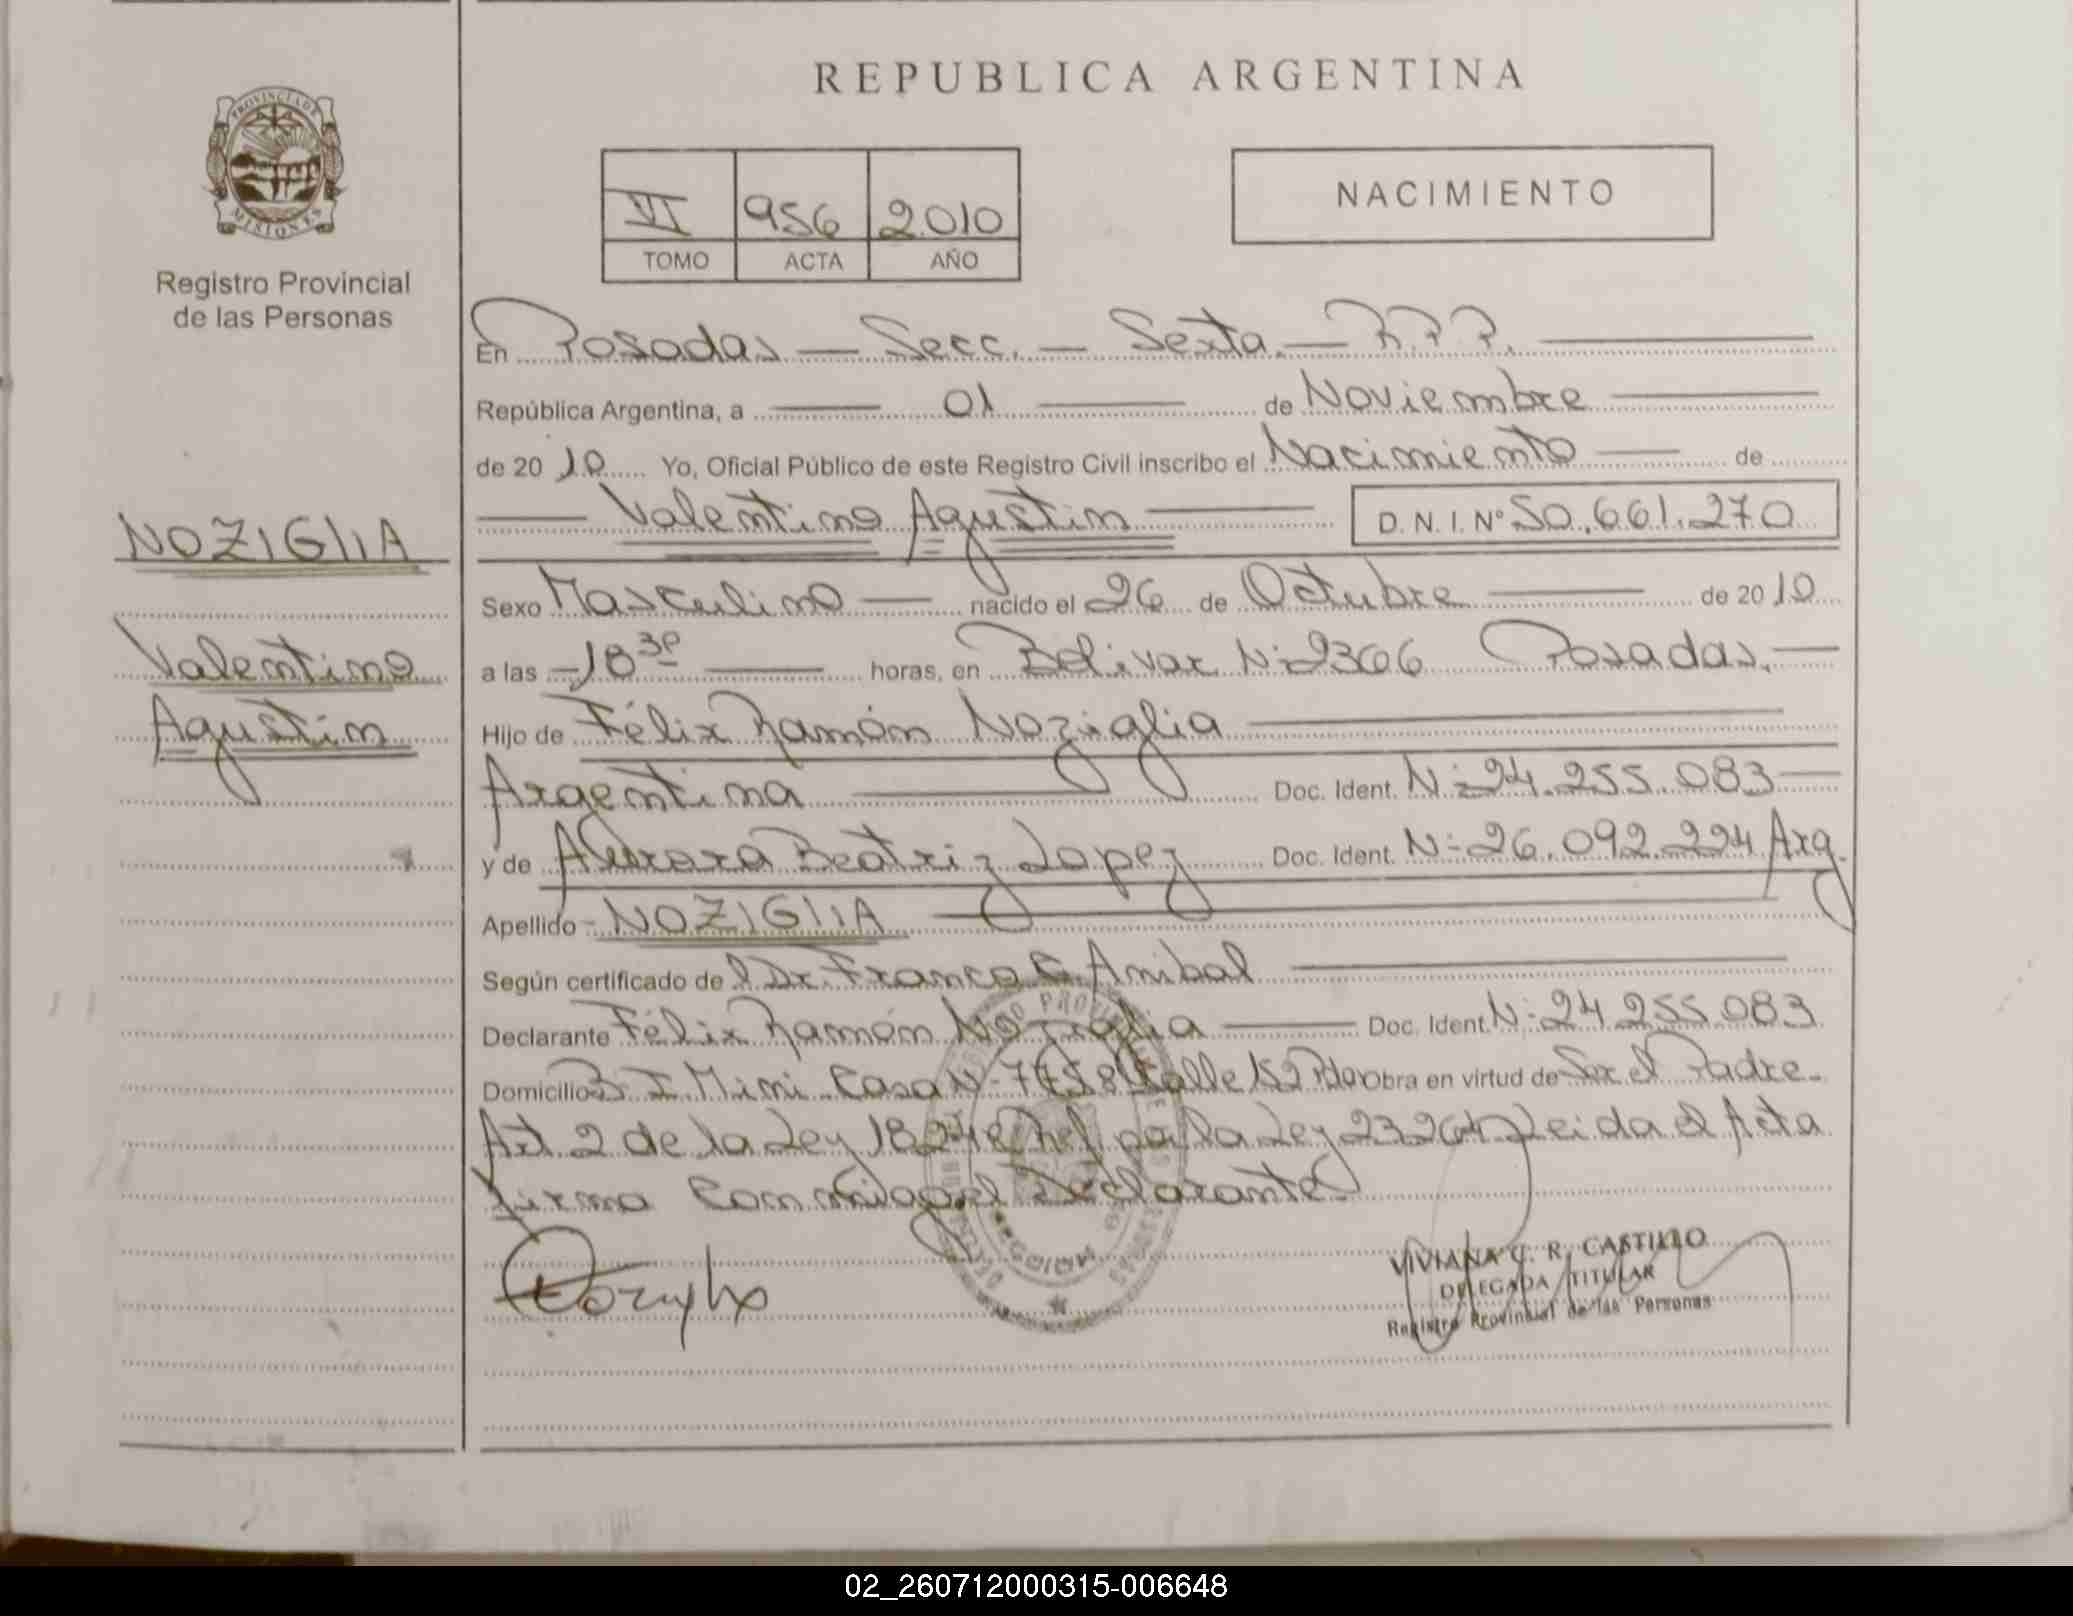 REPUBLICA ARGENTINA
PROVINCIA DE MISIONES
Registro Provincial
de las Personas
VI 956 2010
TOMO ACTA AÑO
NACIMIENTO
En Posadas – Secc. – Sexta. – R.P.P.
República Argentina, a 01 de Noviembre
de 2010 Yo, Oficial Público de este Registro Civil inscribo el Nacimiento de
Valentino Agustín D.N.I. Nº 50.661.270
NOZIGLIA
Valentino
Agustín
Sexo Masculino nacido el 26 de Octubre de 2010
a las 18 30 horas, en Bolivar Nº 2366 Posadas.
Hijo de Félix Ramón Noziglia
Argentina Doc. Ident. Nº 24.255.083
y de Aurora Beatriz Lopez Doc. Ident. Nº 26.092.224 Arg.
Apellido NOZIGLIA
Según certificado de l Dr. Franco Anibal
Declarante Félix Ramón Noziglia Doc. Ident. Nº 24 255 083
Domicilio Casa Nº Calle 152 obra en virtud de Ser el Padre.
Art. 2 de la Ley por la Ley 23264 Leida el Acta
firma Conmigo el Declarante
VIVIANA R. CASTILLO
DELEGADA TITULAR
Registro Provincial de las Personas
02_260712000315-006648